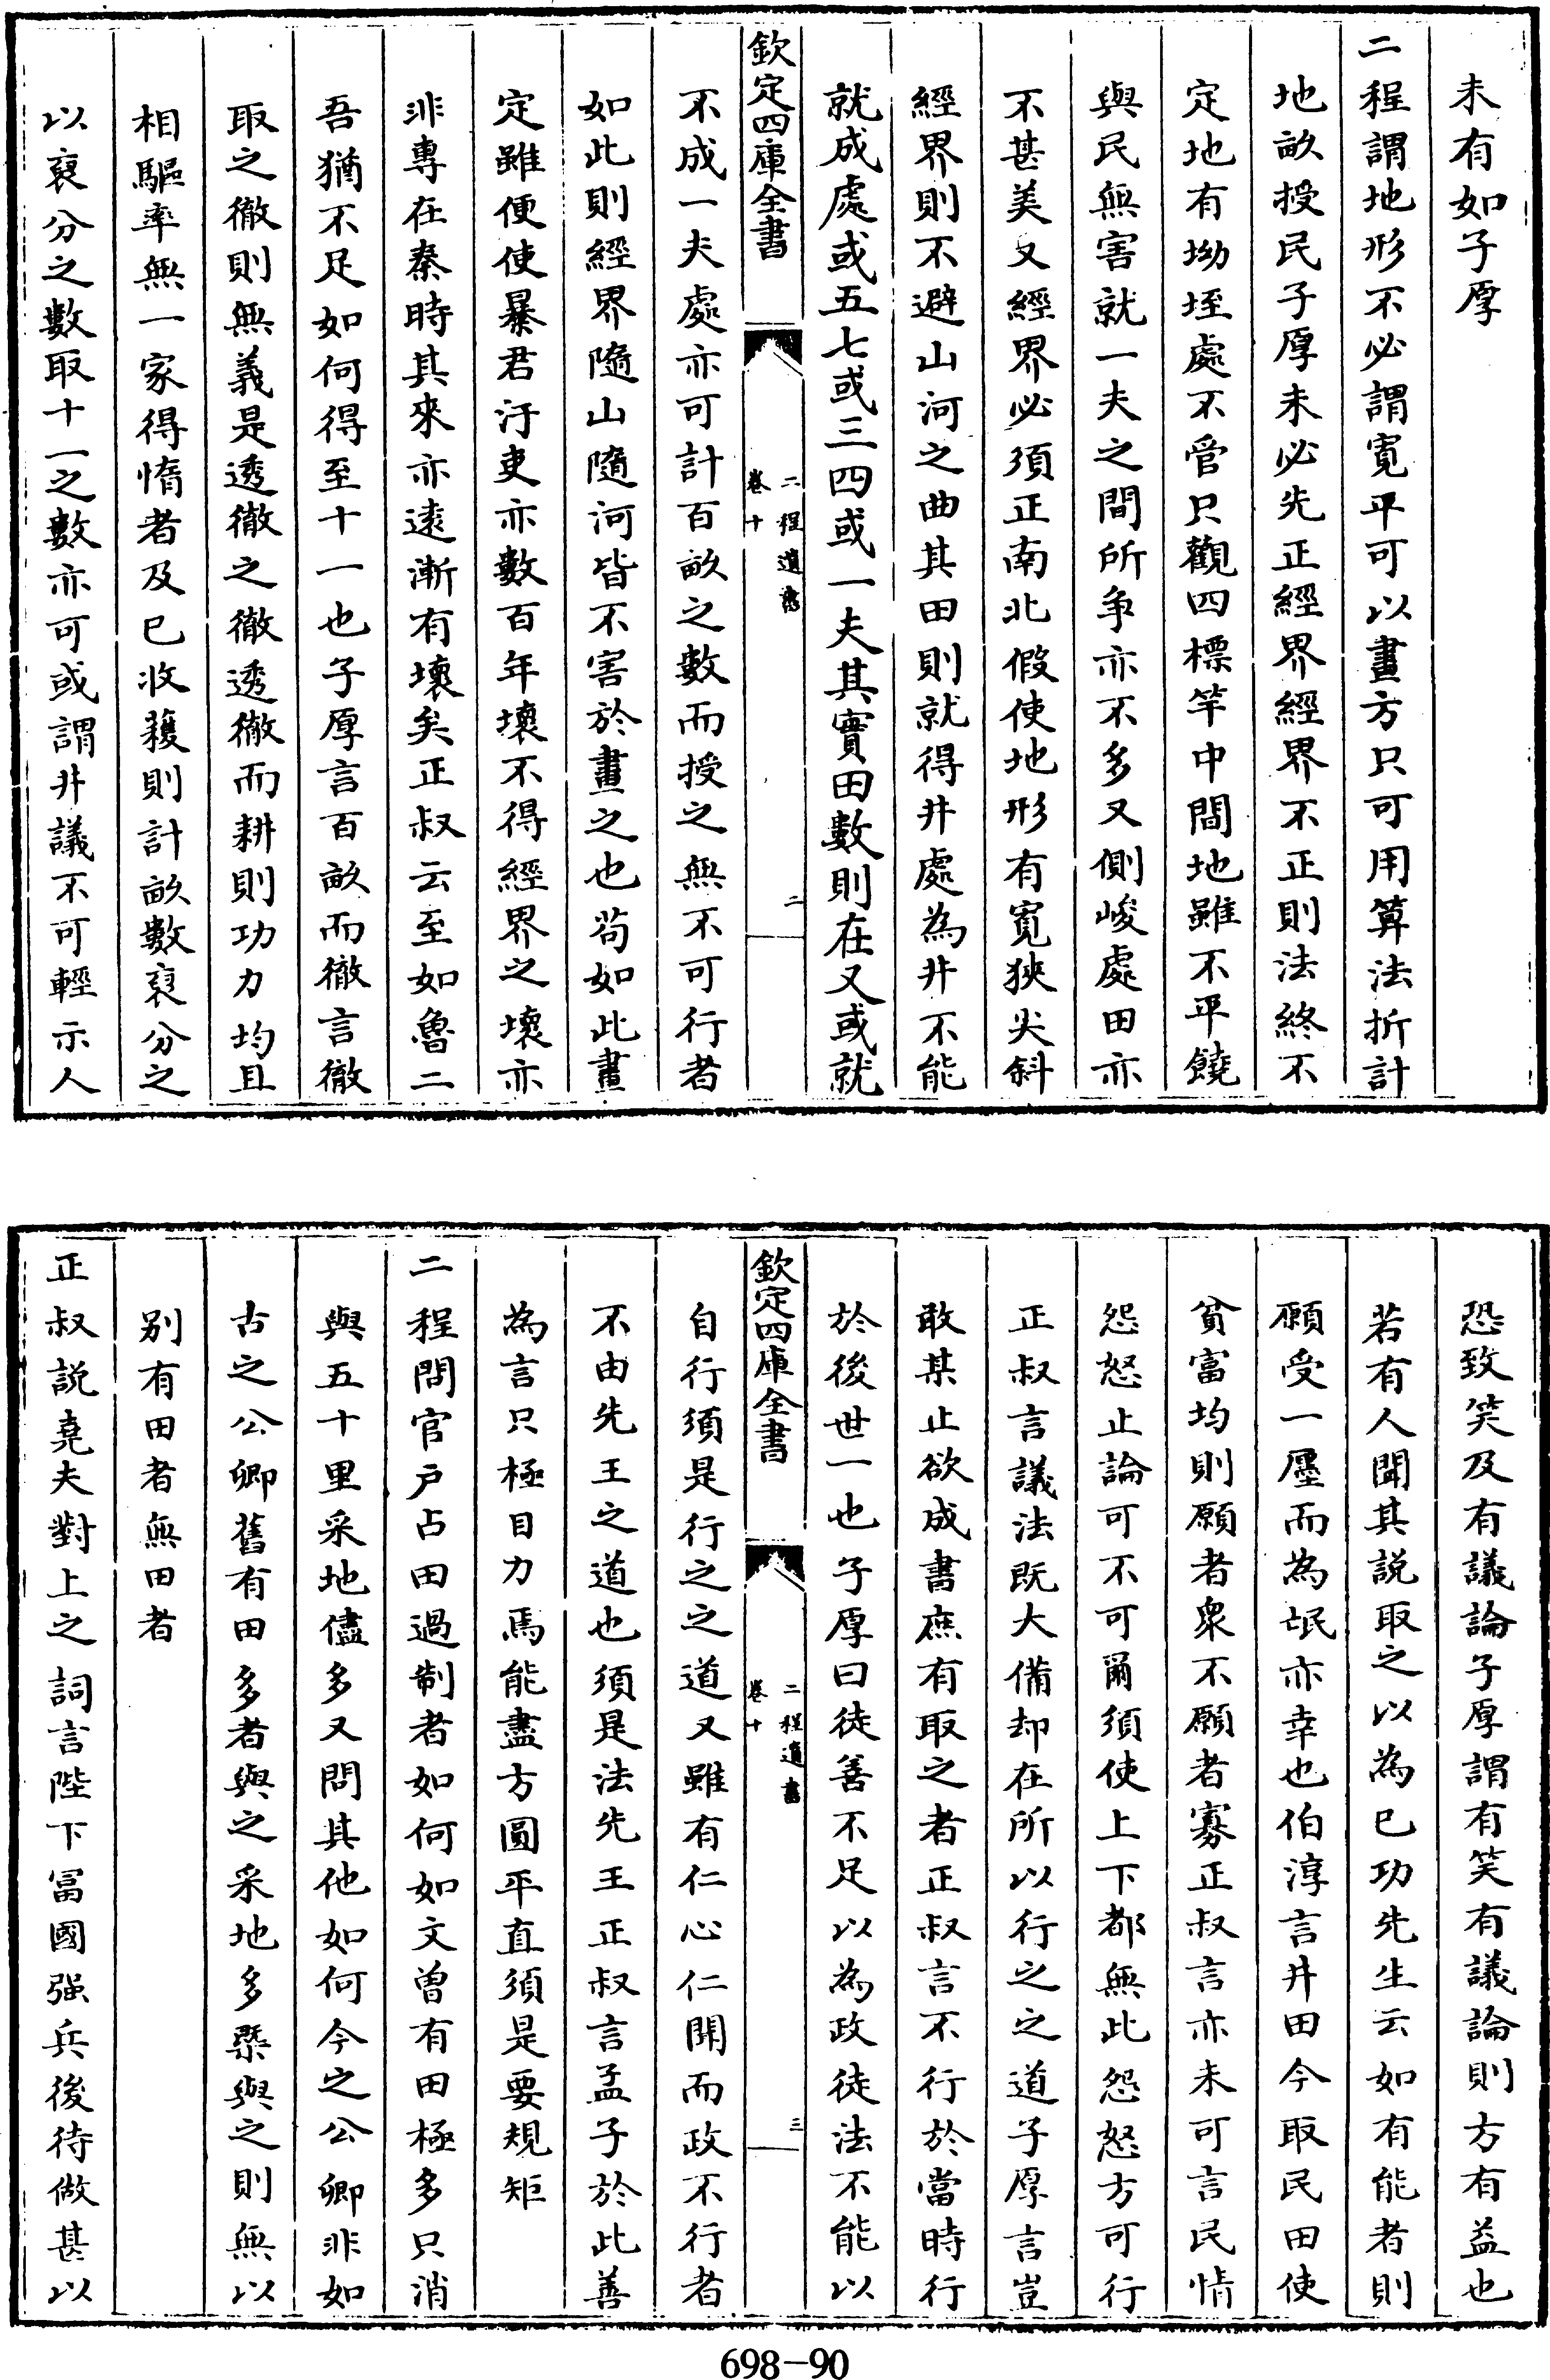 未有如子厚
二程謂地形不必謂寛平可以畫方只可用算法折計
地畝授民子厚未必先正經界經界不正則法終不
定地有坳垤處不管只觀四標竿中間地雖不平饒
與民無害就一夫之間所争亦不多又側峻處田亦
不甚美又經界必須正南北假使地形有寛狹尖斜
經界則不避山河之曲其田則就得井處為井不能
就成處或五七或三四或一夫其實田數則在又或就
欽定四庫全書
二程遺書
卷十
二
不成一夫處亦可計百畝之數而授之無不可行者
如此則經界隨山隨河皆不害於畫之也苟如此畫
定雖便使暴君汙吏亦數百年壞不得經界之壞亦
非專在秦時其來亦逺漸有壞矣正叔云至如魯二
吾猶不足如何得至十一也子厚言百畝而徹言徹
取之徹則無義是透徹之徹透徹而耕則功力均且
相驅率無一家得惰者及已收穫則計畝數裒分之
以裒分之數取十一之數亦可或謂井議不可輕示人
恐致笑及有議論子厚謂有笑有議論則方有益也
若有人聞其説取之以為已功先生云如有能者則
願受一廛而為氓亦幸也伯淳言井田今取民田使
貧富均則願者衆不願者寡正叔言亦未可言民情
怨怒止論可不可爾須使上下都無此怨怒方可行
正叔言議法既大備却在所以行之之道子厚言豈
敢某止欲成書庶有取之者正叔言不行於當時行
於後世一也子厚曰徒善不足以為政徒法不能以
欽定四庫全書
二程遺書
卷十
三
自行須是行之之道又雖有仁心仁聞而政不行者
不由先王之道也須是法先王正叔言孟子於此善
為言只極目力焉能盡方圓平直須是要規矩
二程問官户占田過制者如何如文曽有田極多只消
與五十里采地儘多又問其他如何今之公卿非如
古之公卿舊有田多者與之采地多槩與之則無以
别有田者無田者
正叔説堯夫對上之詞言陛下富國强兵後待做甚以
698-90